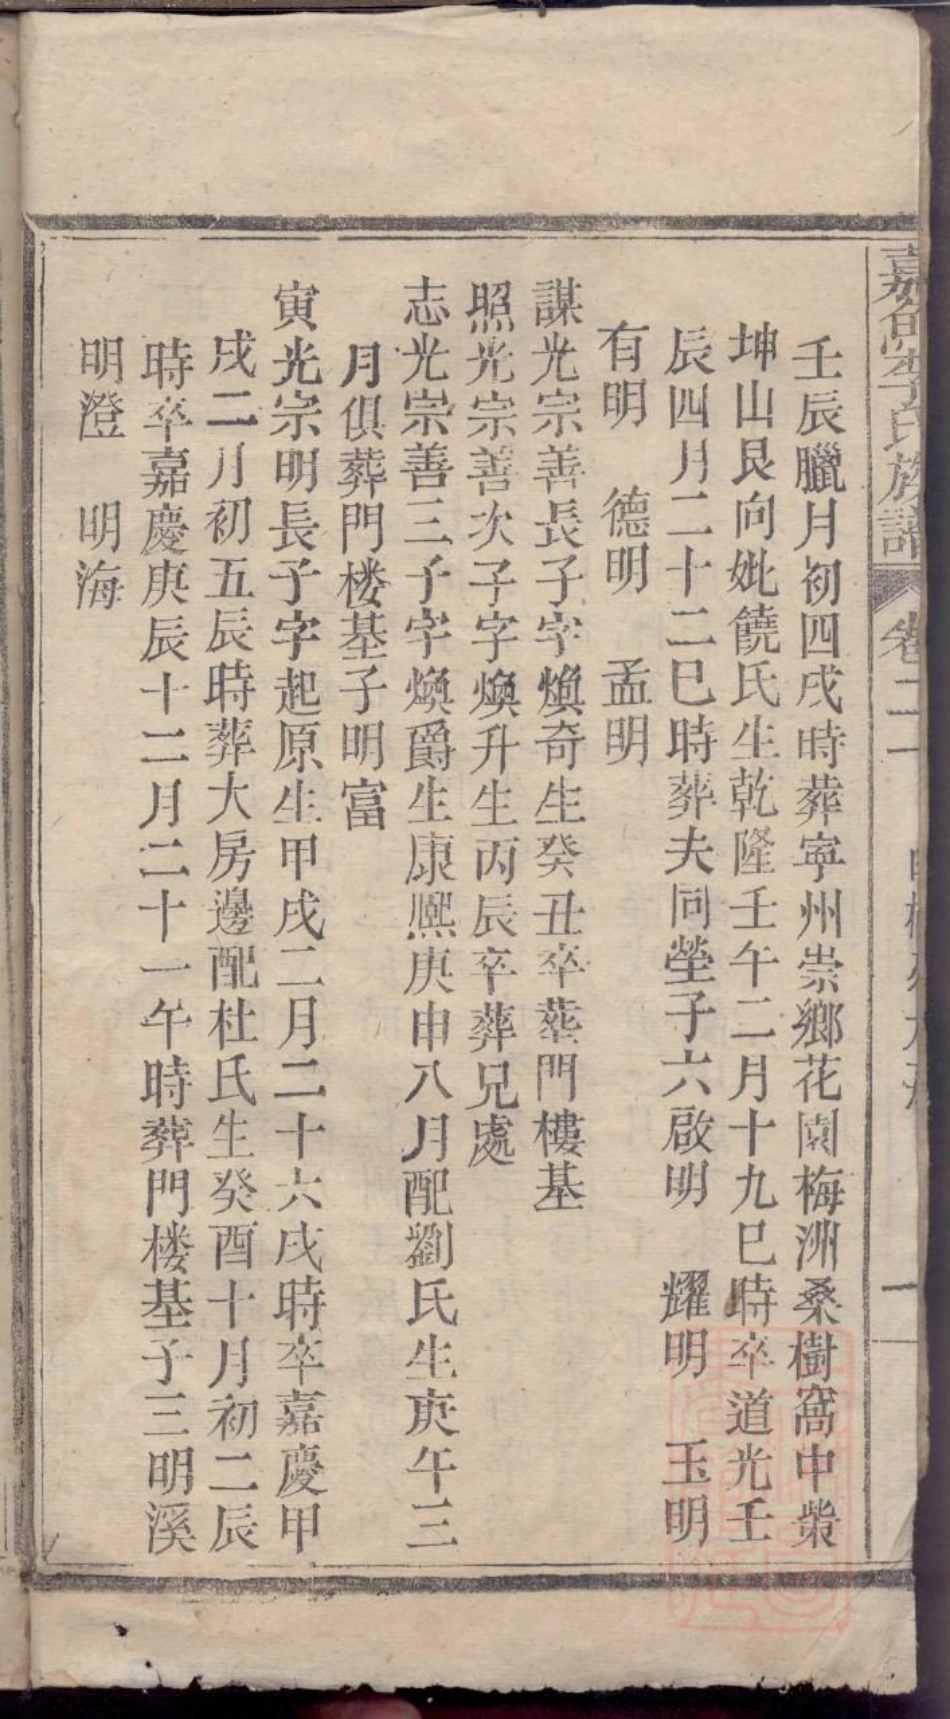 嘉魚李氏族譜 卷二 一
壬辰臘月初四戌時葬寧州崇鄉花園梅洲桑樹窩中棠
坤山艮向妣饒氏生乾隆壬午二月十九巳時卒道光壬
辰四月二十二巳時葬夫同塋子六啟明 耀明 玉明
有明 德明 孟明
謀光宗善長子字煥奇生癸丑卒葬門樓基
照光宗善次子字煥升生丙辰卒葬兄處
志光宗善三子字煥爵生康熙庚申八月配劉氏生庚午三
月俱葬門楼基子明富
寅光宗明長子字起原生甲戌二月二十六戌時卒嘉慶甲
戌二月初五辰時葬大房邊配杜氏生癸酉十月初二辰
時卒嘉慶庚辰十二月二十一午時葬門楼基子三明溪
明澄 明海